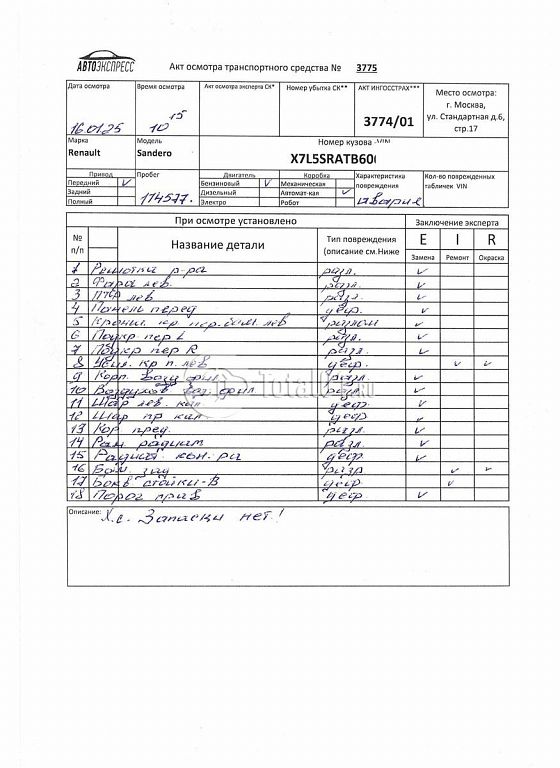 АВТОЭКСПРЕСС
Акт осмотра транспортного средства № 3775
Дата осмотра
16.01.25
Время осмотра
10 15
Акт осмотра эксперта СК*
Номер убытка СК**
АКТ ИНГОССТРАХ***
3774/01
Место осмотра:
г. Москва,
ул. Стандартная д.6,
стр.17
Марка
Renault
Модель
Sandero
Номер кузова VIN
X7L5SRATB60
Привод
Передний V
Задний
Полный
Пробег
174577.
Двигатель
Бензиновый V
Дизельный
Электро
Коробка
Механическая
Автомат-кая V
Робот
Характеристика
повреждения
Авария
Кол-во поврежденных
табличек VIN
При осмотре установлено
Заключение эксперта
№
п/п
Название детали
Тип повреждения
(описание см.Ниже
E I R
Замена Ремонт Окраска
1 р-ра разл. v
2 Фара лев. разл. v
3 ПТФ лев разл. v
4 Понель перед деф. v
5 Кронш. кр пер.бам. лев разлом v
6 Подкр пер L разл. v
7 Подкр пер R разл. v
8 Усил. кр п. лев деф. v v
9 Корп. возд фил. разл. v
10 Воздухов воз. фил. разл. v
11 лев. деф. v
12 пр деф. v
13 Кор пред. разл. v
14 Рам. радиат. разл. v
15 кон-ра деф. v
16 Бам. зад разр v v
17 Бокв стойки-В деф. v
18 Порог прав деф. v
Описание: Х.с. Запаски нет!